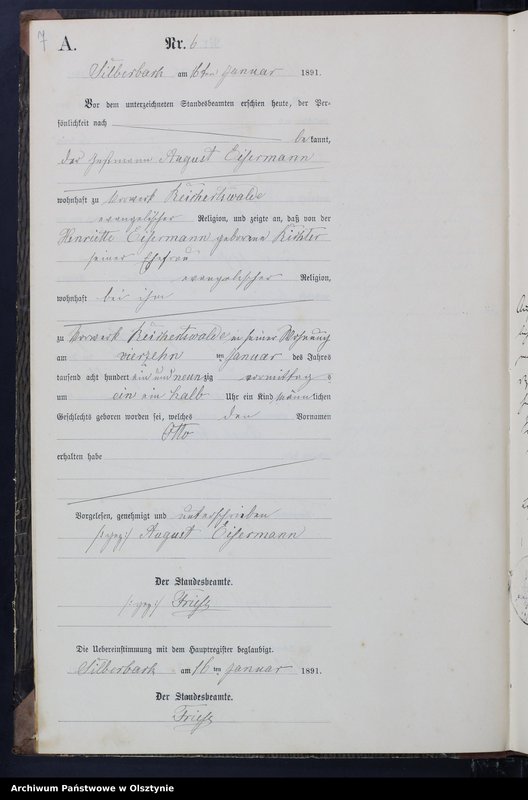 7 A. Nr. 6
Silberbach am 16ten Januar 1891.
Vor dem unterzeichneten Standesbeamten erschien heute, der Per-
sönlichkeit nach
be kannt,
der August Eisermann
wohnhaft zu Vorwerk Reichertswalde
evangelischer Religion, und zeigte an, daß von der
Henriette Eisermann geborene Richter
seiner Ehefrau
evangelischer Religion,
wohnhaft bei ihm
zu Vorwerk Reichertswalde in seiner Wohnung
am vierzehn ten Januar des Jahres
tausend acht hundert ein und neun zig vormittag s
um ein ein halb Uhr ein Kind männ lichen
Geschlechts geboren worden sei, welches den Vornamen
Otto
erhalten habe
Vorgelesen, genehmigt und unterschrieben
/:gez:/ August Eisermann
Der Standesbeamte.
/:gez:/
Die Uebereinstimmung mit dem Hauptregister beglaubigt.
Silberbach am 16 ten Januar 1891.
Der Standesbeamte.
Archiwum Państwowe w Olsztynie